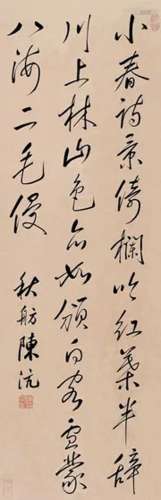 小春詩景倚欄吟紅葉半辭
川上林山色亦如頒白容霊蒙
八海二毛侵
秋舫陳沆